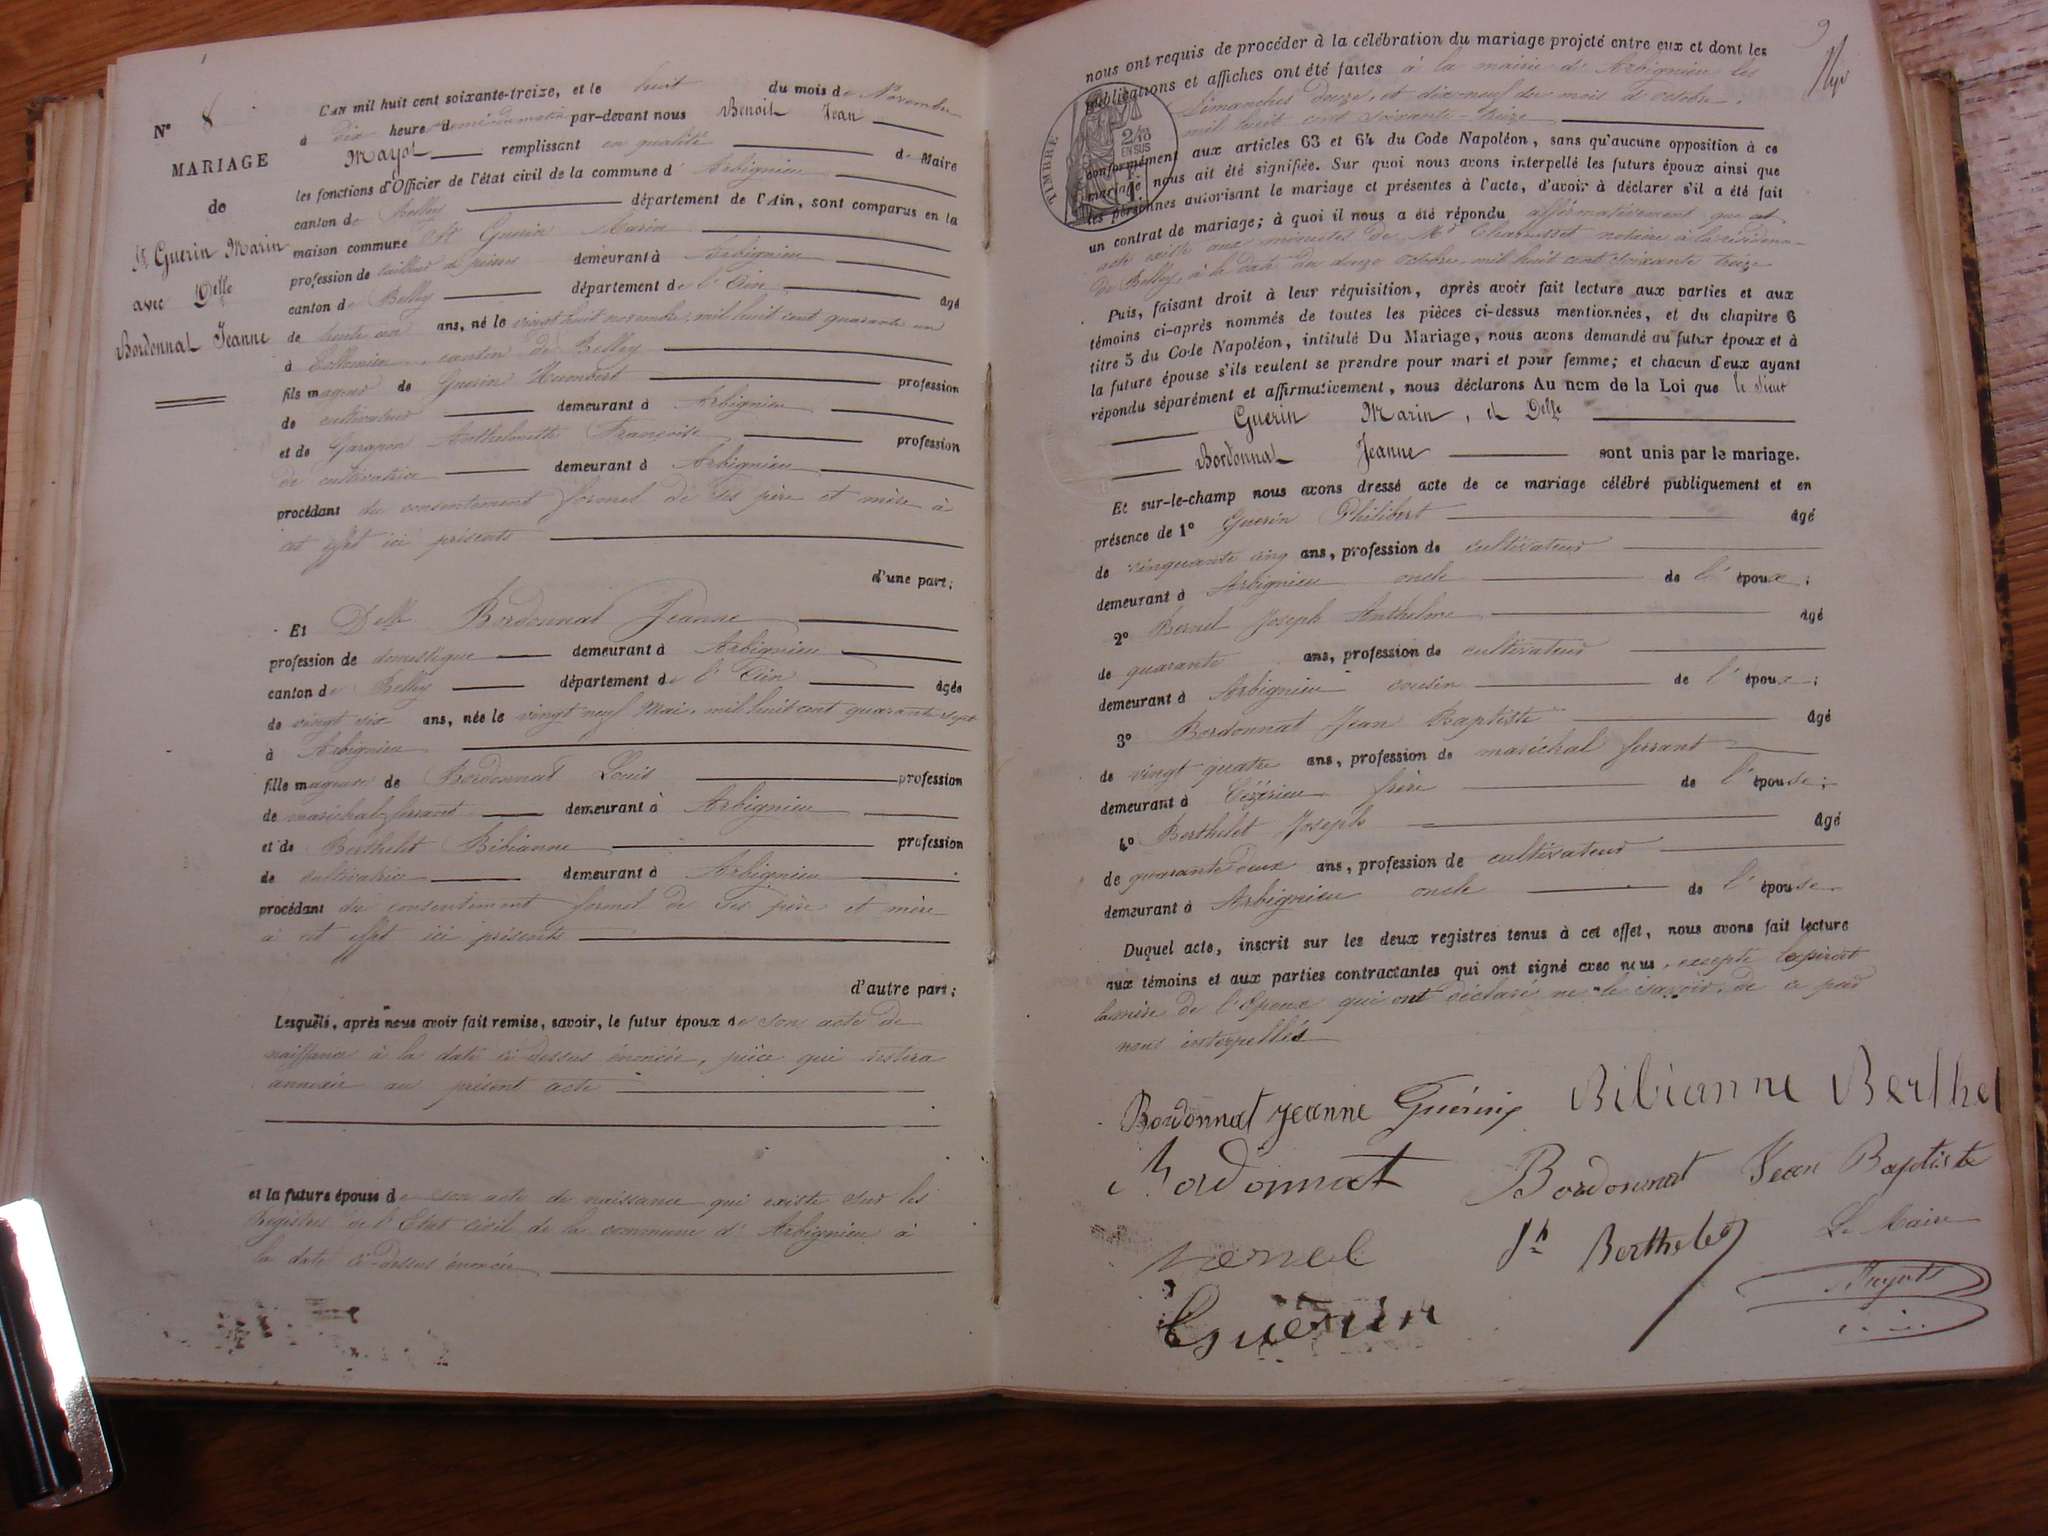 N° 8
MARIAGE
de
Sr Guerin Marin
avec Delle
Bordonnat Jeanne
L'an mil huit cent soixante-treize, et le huit du mois de Novembre
à dix heure demi du matin par-devant nous Benoit Jean
Mayot remplissant en qualité de Maire
les fonctions d'Officier de l'état civil de la commune d'Arbignieu
canton de Belley département de l'Ain, sont comparus en la
maison commune Sr Guerin Marin
profession de tailleur de pierres demeurant à Arbignieu
canton de Belley département de l'Ain âgé
de trente un ans, né le vingt huit novembre, mil huit cent quarante un
à Collomieu canton de Belley
fils majeur de Guerin Humbert profession
de cultivateur demeurant à Arbignieu
et de Garapon Anthelmette Françoise profession
de cultivatrice demeurant à Arbignieu
procédant du consentement formel de ses père et mère à
cet effet ici présents
d'une part;
Et Delle Bordonnat Jeanne
profession de domestique demeurant à Arbignieu
canton de Belley département de l'Ain âgée
de vingt six ans, née le vingt neuf Mai, mil huit cent quarante sept
à Arbignieu
fille majeure de Bordonnat Louis profession
de maréchal-ferrant demeurant à Arbignieu
et de Berthelet Bibianne profession
de cultivatrice demeurant à Arbignieu
procédant du consentement formel de ses père et mère
à cet effet ici présents
d'autre part;
Lesquels, après nous avoir fait remise, savoir, le futur époux de son acte de
naissance à la date ci-dessus énoncée, pièce qui restera
annexée au présent acte
et la future épouse de son acte de naissance qui existe sur les
Registres de l'Etat civil de la commune d'Arbignieu à
la date ci-dessus énoncée
9
nous ont requis de procéder à la célébration du mariage projeté entre eux et dont les
publications et affiches ont été faites à la mairie d'Arbignieu les
Dimanches douze, et dix-neuf du mois d'octobre,
mil huit cent soixante-treize
TIMBRE
2/10
EN SUS
conformément aux articles 63 et 64 du Code Napoléon, sans qu'aucune opposition à ce
mariage nous ait été signifiée. Sur quoi nous avons interpellé les futurs époux ainsi que
les personnes autorisant le mariage et présentes à l'acte, d'avoir à déclarer s'il a été fait
un contrat de mariage; à quoi il nous a été répondu affirmativement que cet
acte existe aux minutes de Me notaire à la résidence
de Belley, à la date du douze octobre, mil huit cent soixante treize
Puis, faisant droit à leur réquisition, après avoir fait lecture aux parties et aux
témoins ci-après nommés de toutes les pièces ci-dessus mentionnées, et du chapitre 6
titre 5 du Code Napoléon, intitulé Du Mariage, nous avons demandé au futur époux et à
la future épouse s'ils veulent se prendre pour mari et pour femme; et chacun d'eux ayant
répondu séparément et affirmativement, nous déclarons Au nom de la Loi que le Sieur
Guerin Marin, et Delle
Bordonnat Jeanne sont unis par le mariage.
Et sur-le-champ nous avons dressé acte de ce mariage célébré publiquement et en
présence de 1° Guerin Philibert âgé
de cinquante cinq ans, profession de cultivateur
demeurant à Arbignieu oncle de l'époux;
2° Bernel Joseph Anthelme âgé
de quarante ans, profession de cultivateur
demeurant à Arbignieu cousin de l'époux;
3° Bordonnat Jean Baptiste âgé
de vingt quatre ans, profession de maréchal ferrant
demeurant à Cézérieu frère de l'épouse;
4° Berthelet Joseph âgé
de quarante deux ans, profession de cultivateur
demeurant à Arbignieu oncle de l'épouse
Duquel acte, inscrit sur les deux registres tenus à cet effet, nous avons fait lecture
aux témoins et aux parties contractantes qui ont signé avec nous, excepté le père et
la mère de l'époux qui ont déclaré ne le savoir, de ce par
nous interpellés
Bordonnat Jeanne Guérin Bibianne Berthel
Bordonnat Bordonnat Jean Baptiste
Le Maire
Jh Berthelet
Mayot
Guérin